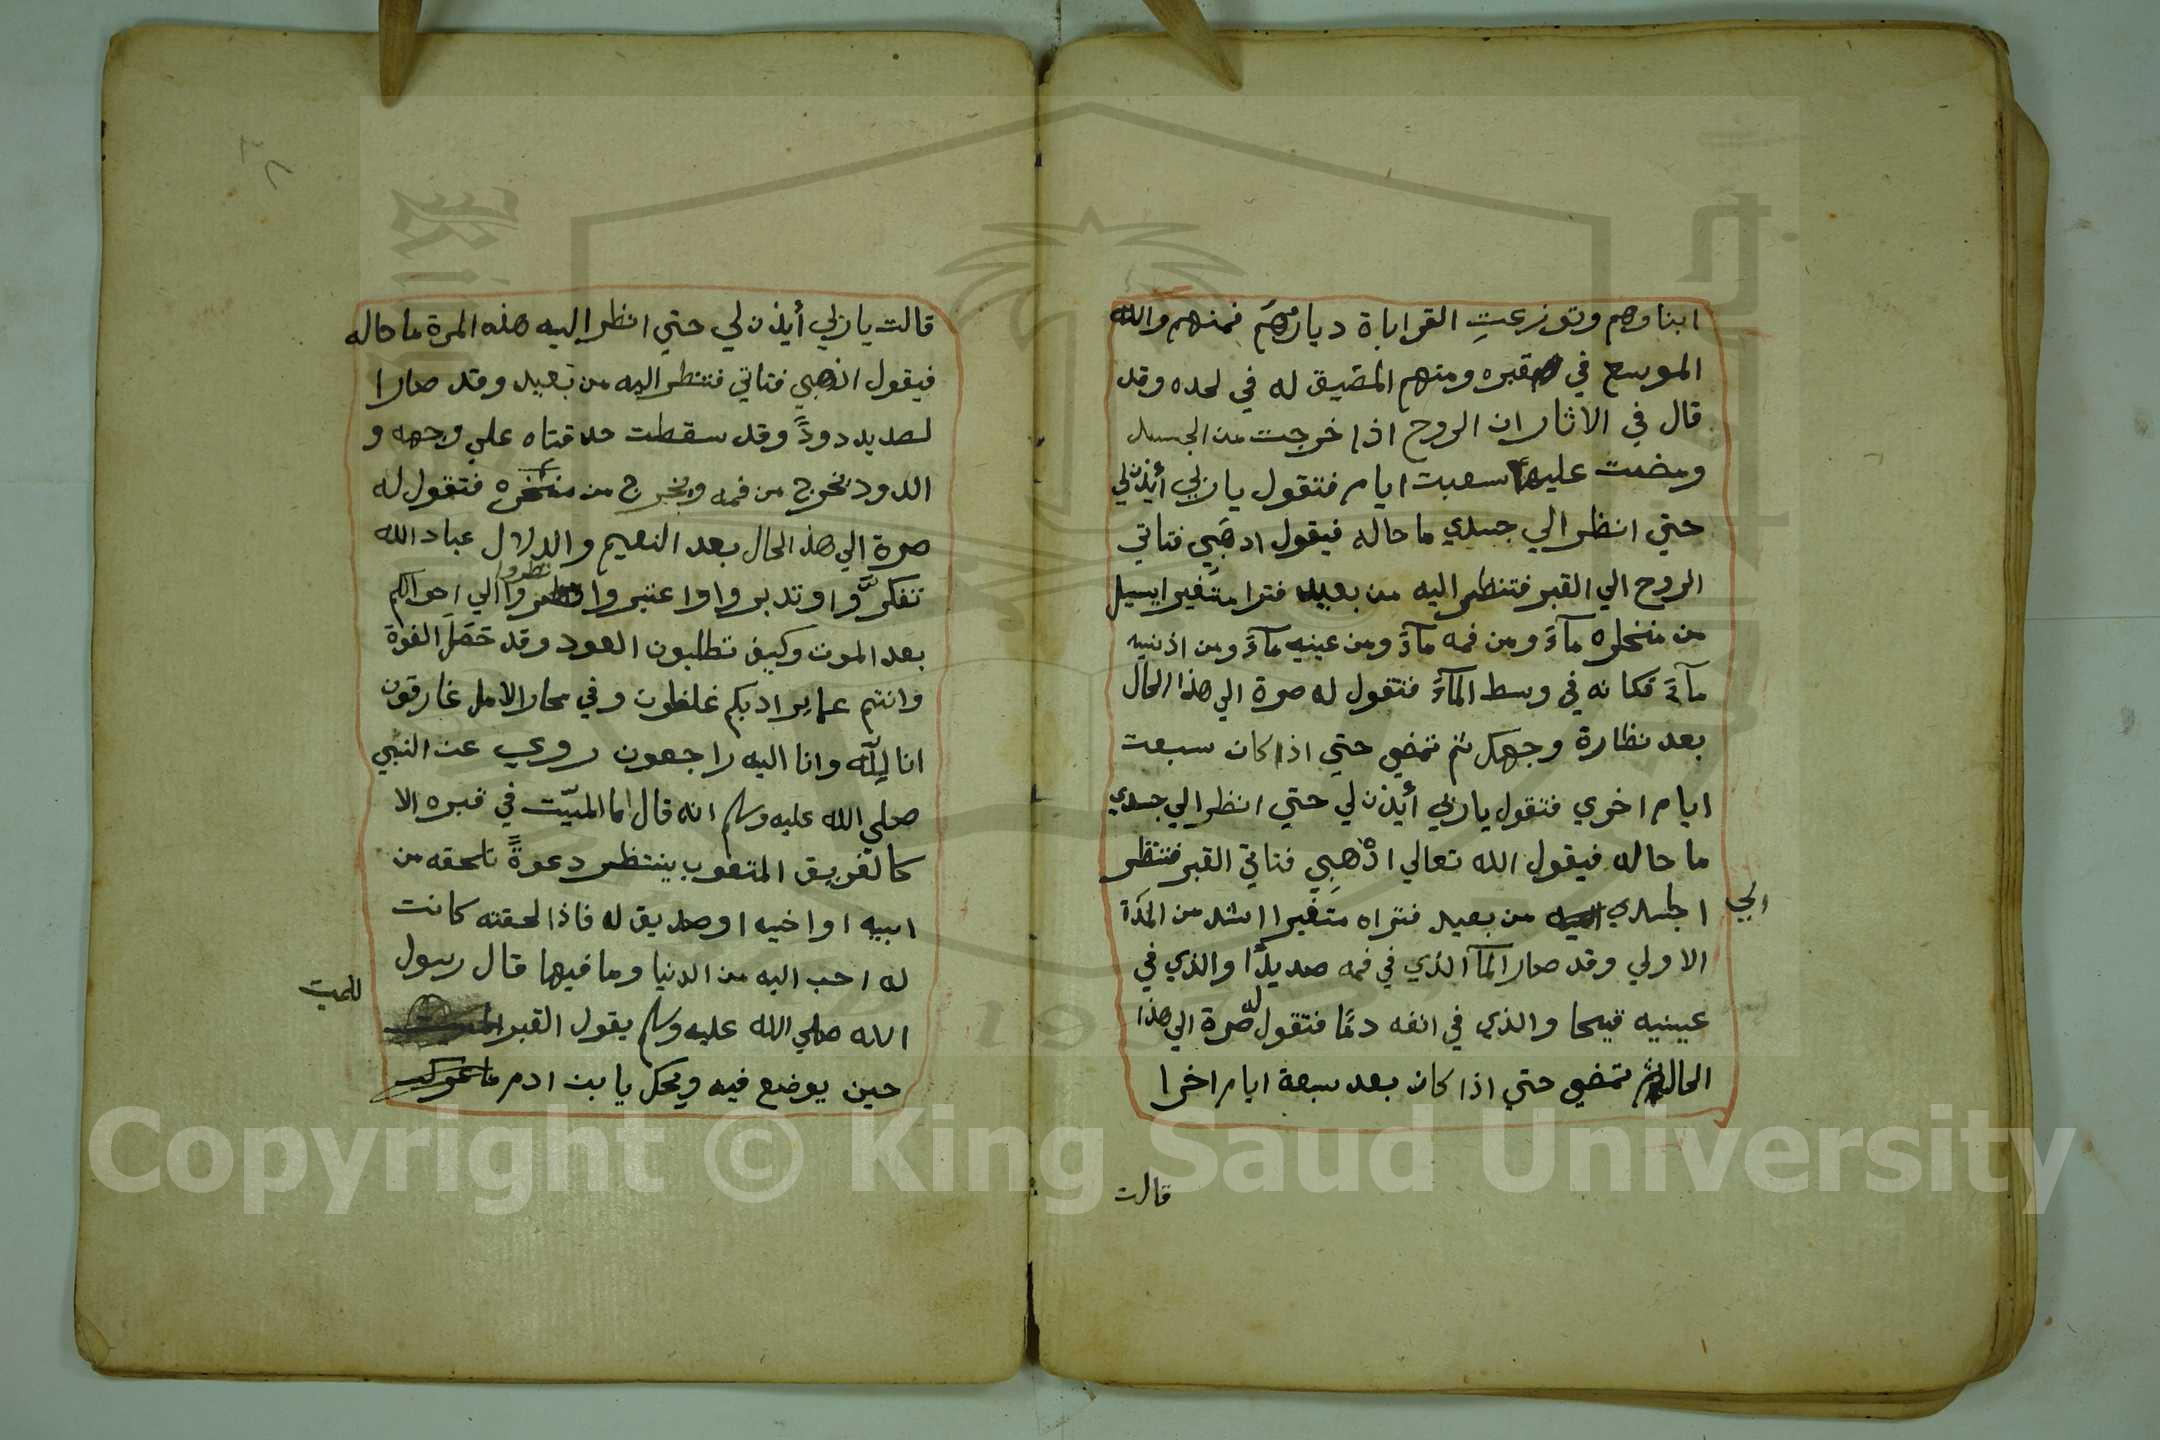 ابناوهم وتوزعتِ القراباة ديارهُم فمنهم والله
الموسع في قبره ومنهم المضيق له في لحده وقد
قال في الاثار ان الروح اذا خرجت من الجسد
ومضت عليها سبعت ايام فتقول يا ربي أيذن لي
حتي انظر الي جسدي ما حاله فيقول اذهبي فتاتي
الروح الي القبر فتنظر اليه من بعيد فترا متغير ايسيل
من منخاره مآءً ومن فمه مآءً ومن عينيه مآءً ومن اذنيه
مآءً فكانه في وسط المآءَ فتقول له صرة الي هذا الحال
بعد نظارة وجهك ثم تمضي حتي اذا كان سبعت
ايام اخري فتقول يا ربي أيذن لي حتي انظر الي جسدي
ما حاله فيقول الله تعالي اذهبي فتاتي القبر فتنظر
الي
الجسدي من بعيد فتراه متغيرا اشد من المدة
الاولي وقد صار المآ الذي في فمه صديدًا والذي في
عينيه قيحا والذي في انفه دمًا فتقول له صرة الي هذا
الحال ثم تمضي حتي اذا كان بعد سبعة ايام اخرا
قالت
قالت يا ربي أيذن لي حتي انظر اليه هذه المرة ما حاله
فيقول اذهبي فتاتي فتنظر اليه من بعيد وقد صارا
لصديد دودًا وقد سقطت حدقتاه علي وجهه و
الدود تخرج من فمه ويخرج من منخره فتقول له
صرة الي هذ الحال بعد النعيم والدلال عباد الله
تفكرَّوا وتدبروا واعتبروا وانظروا الي احوالكم
بعد الموت وكيف تطلبون العود وقد حَصَلَ الفوة
وانتم عما يراد بكم غلفلون وفي بحار الامل غارقون
انا لِلّه وانا اليه راجعون روي عن النبي
صلي الله عليه وسلم انه قال اما الميّت في قبره الا
كالغريق المتغوب ينتظر دعوةً تلحقه من
ابيه او اخيه او صديق له فاذا لحقته كانت
له احب اليه من الدنيا وما فيها قال رسول
الله صلي الله عليه وسلم يقول القبر
للميت
حين يوضع فيه ويحك يا بن ادم ما غرك
Copyright © King Saud University